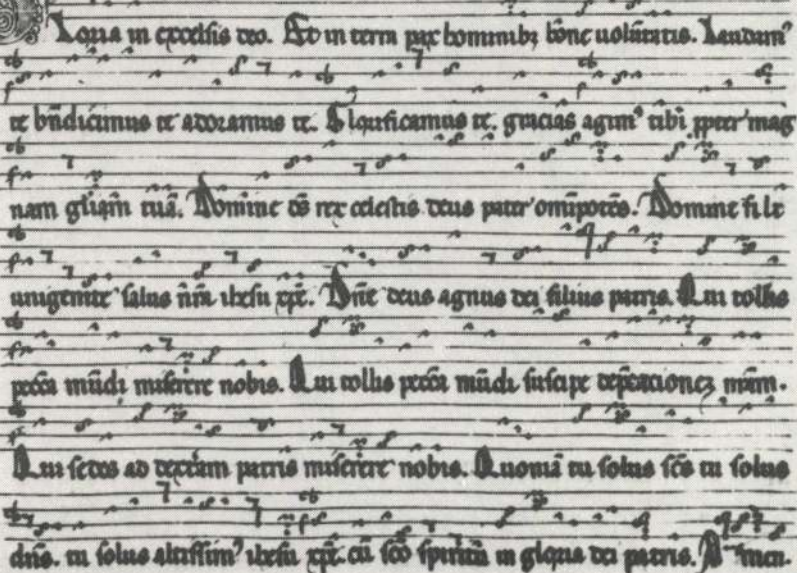 Gloria in excelsis deo. Et in terra pax hominibꝫ bone uolūtatis. Laudamꝰ
te bn̄dicimus te adoramus te. Glorificamus te. gracias agimꝰ tibi ꝓpter mag
nam gl̄iam tuā. Domine ds̄ rex celestis deus pater omīpotēs. Domine fili
unigenite salus nr̄a ihesu xp̄e. Dn̄e deus agnus dei filius patris. Qui tollis
pecc̄a mūdi miserere nobis. Qui tollis pecc̄a mūdi suscipe dep̄cacioneꝫ nr̄am.
Qui sedes ad dexteram patris miserere nobis. Quoniā tu solus sc̄s tu solus
dn̄s. tu solus altissimꝰ ihesu xp̄e. cū sc̄o spiritu in gloria dei patris. Amen.